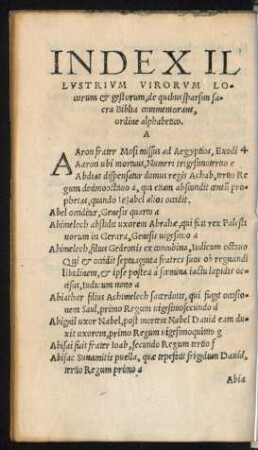 INDEX IL
LVSTRIVM VIRORVM LO-
corum & gestorum, de quibus sparsim sa
cra Biblia commemorant,
ordine alphabetico.
A
AAron frater Mosi missus ad Aegyptios, Exodi 4
Aaron ubi mortuus, Numeri trigesimotertio e
Abdias dispensator domus regis Achab, tertio Re
gum decimooctauo a, qui etiam abscondit centũ pro-
phetas, quando Iezabel alios occidit.
Abel occiditur, Genesis quarto a
Abimelech abstulit uxorem Abrahæ, qui fuit rex Palesti
norum in Gerara, Genesis uigesimo a
Abimelech, filius Gedeonis ex concubina, Iudicum octauo
Qui & occidit septuaginta fratres suos ob regnandi
libidinem, & ipse postea à fœmina iactu lapidis occi-
sus, Iudicum nono a
Abiathar filius Achimelech sacerdotis, qui fugit occisio-
nem Saul, primo Regum uigesimosecundo d
Abigail uxor Nabel, post mortem Nabel Dauid eam du-
xit uxorem, primo Regum uigesimoquinto g
Abisai fuit frater Ioab, secundo Regum tertio f
Abisac Sunamitis puella, quæ tepefecit frigidum Dauid,
tertio Regum primo a
Abia